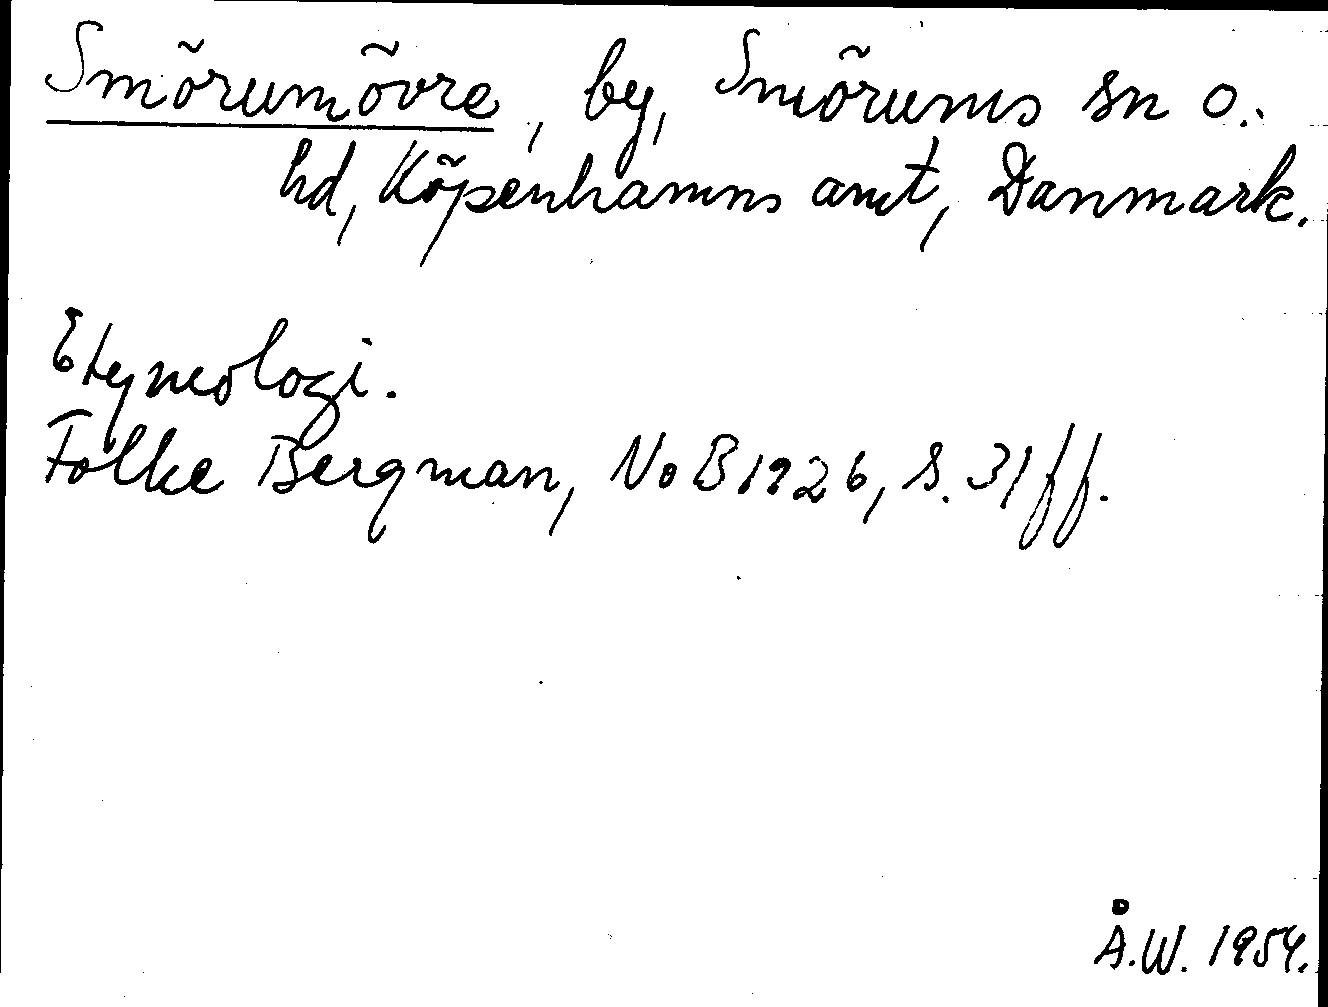 Smõrumõvre, by, Smõrums sn o.
hd, Kõpenhamns amt, Danmark.
Etymologi.
Folke Bergman, NoB 1926, s. 31 ff.
Å.W. 1954.